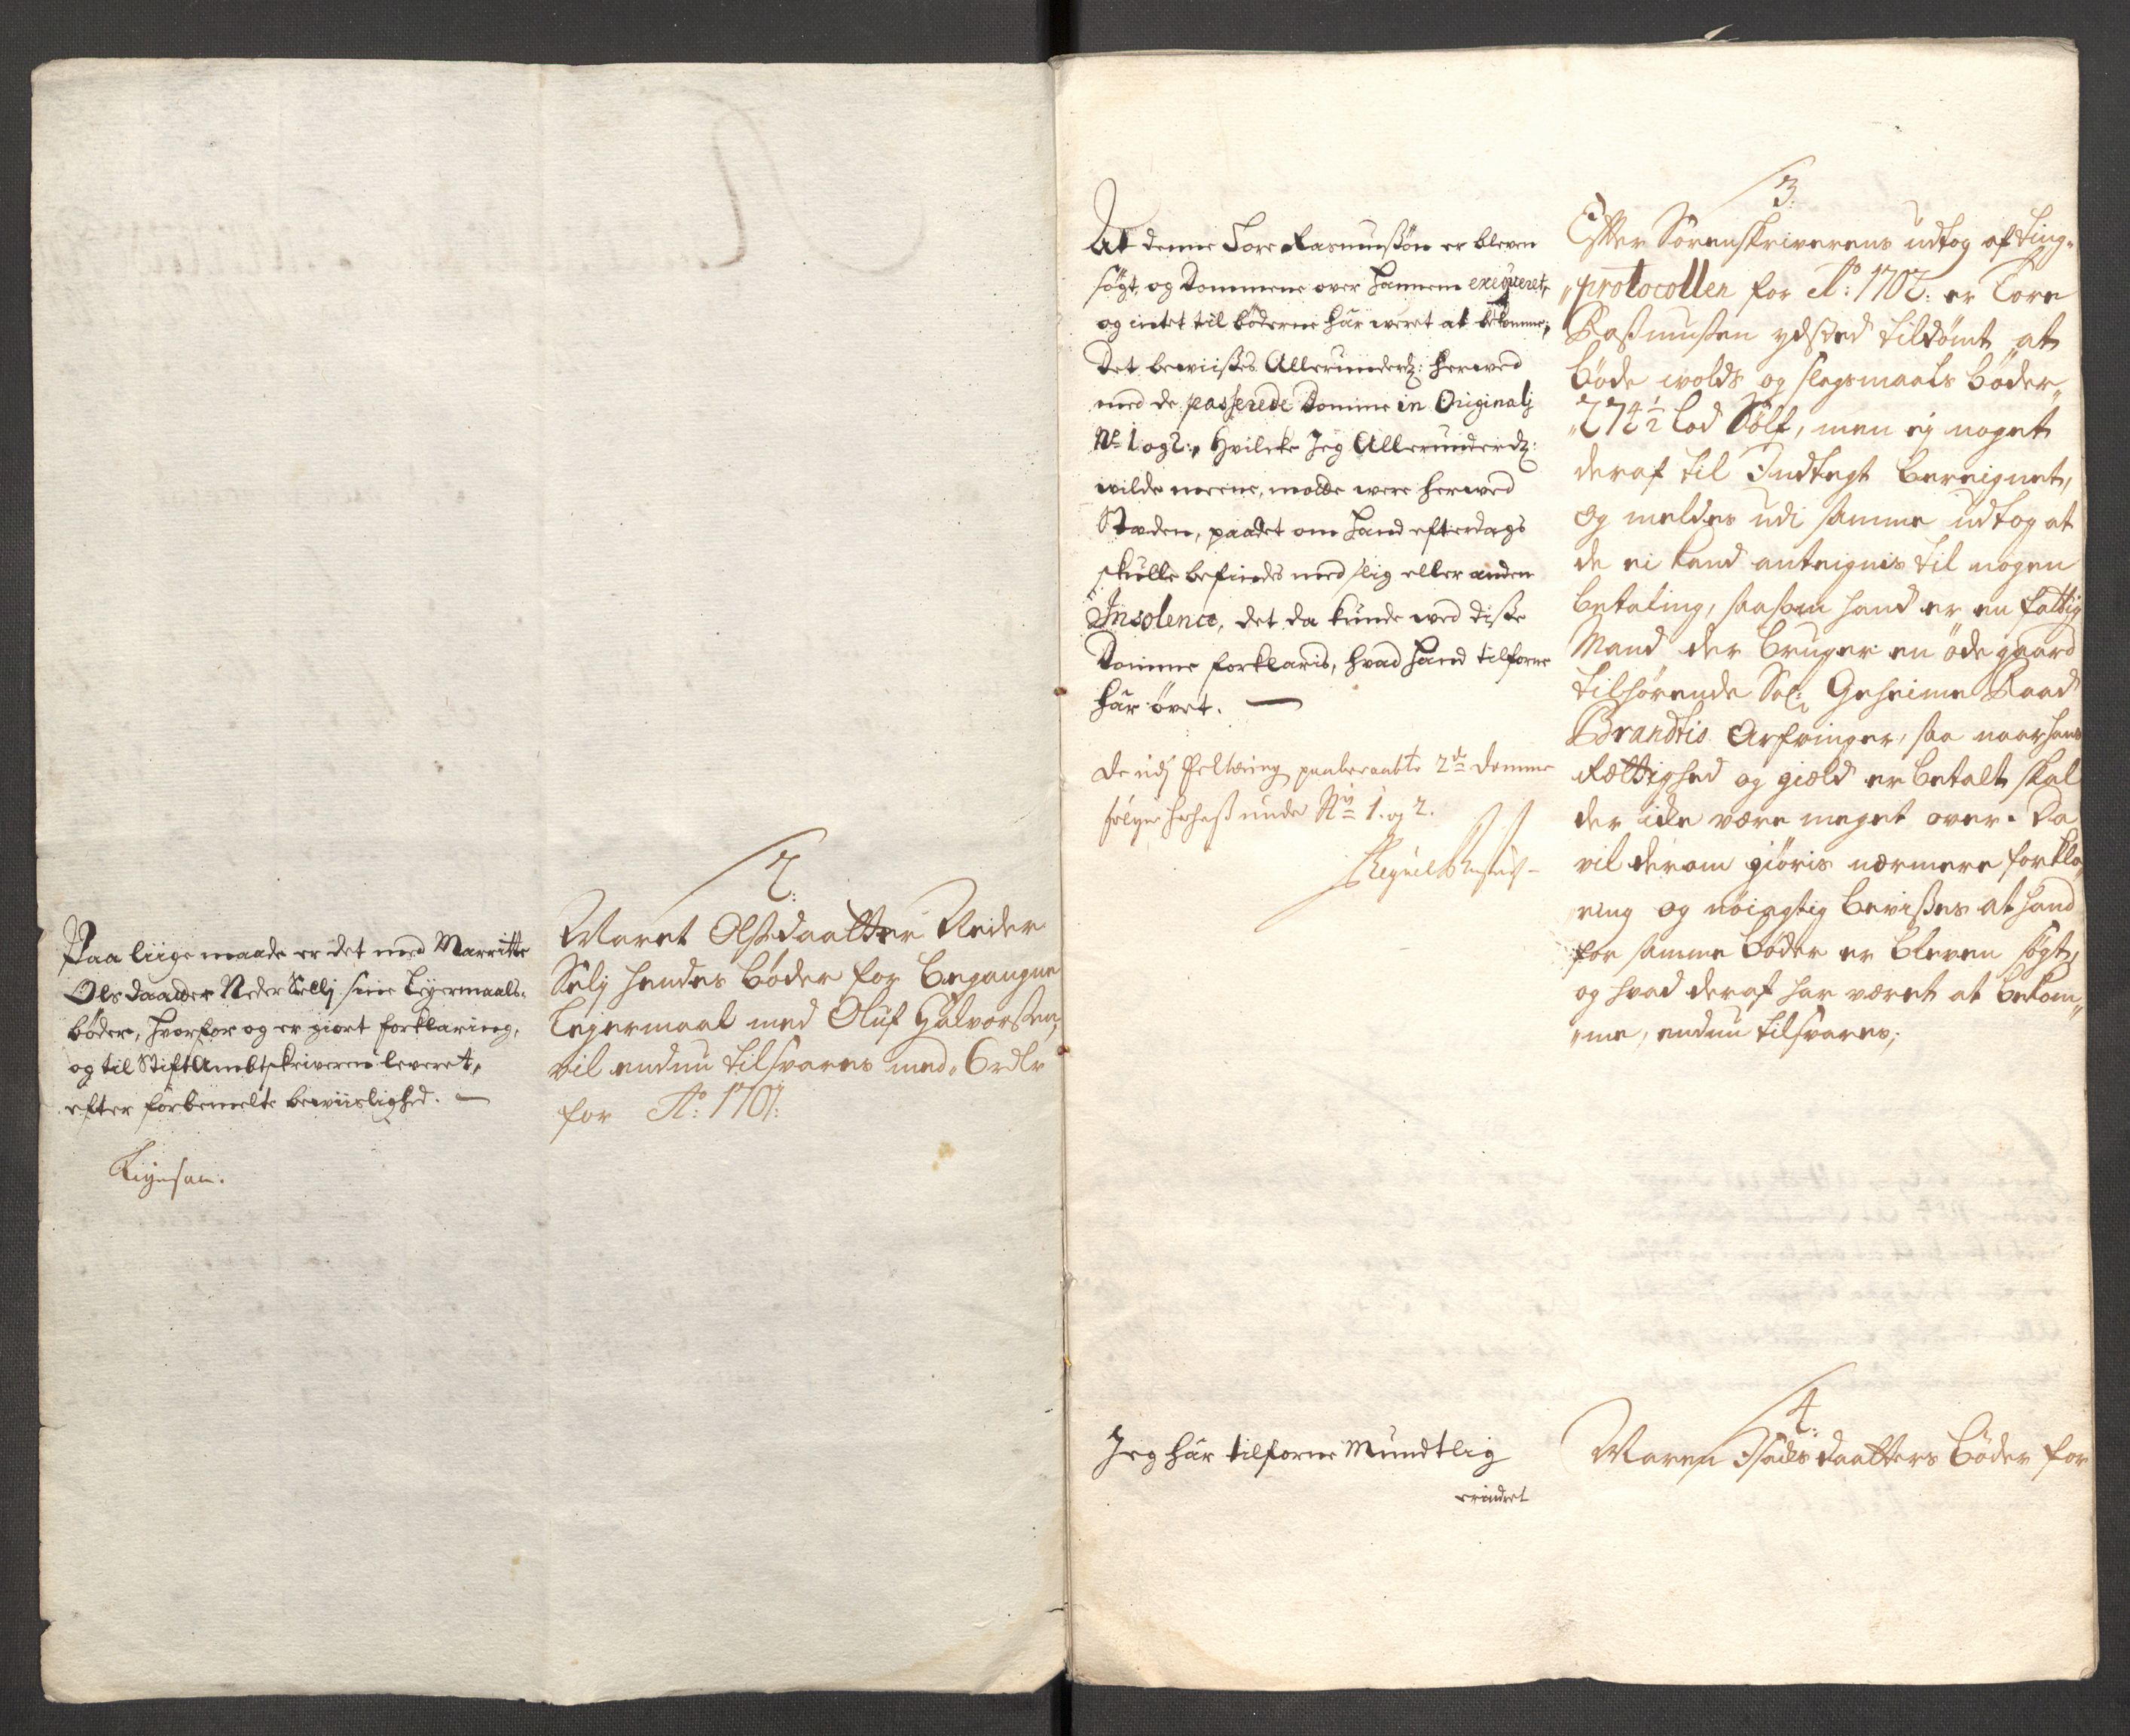 Paa liige maade er det med Marritte
Olsdaatter Neder Sellj sine Leyermaals-
bøder, hvorfor og er giort forklaring,
og til StiftAmbtskriveren leveret,
efter forbemelte beviislighed. —
2:
Maret Olsdaatter Neder
Selj hendes bøder for begangne
Leyermaal med Oluf Halvorsen,
vil endnu tilsvares med 6 rdlr
for Ao: 1701:
At denne Tore Rasmussøn er bleven
søgt, og Dommene over hannem exeqveret,
og intet til bøderne har weret at bekomme,
Det beviisses Allerunderdg: herved
med de passerede Domme in Originalj
No 1 og 2:, Hvilcke Jeg Allerunderdg:
wilde meene, motte were herved
Støden, paadet om hand efterdags
skulle befindes med slig eller anden
Insolence, det da kunde ved disse
Domme forklaris, hvad hand tilforne
har øvet. —
de udj forklaring paaberaabte 2de domme
følger herhoß under No 1. og 2.
3:
Effter Sorenskriverens udtog af ting-
protocollen for Ao: 1702: er Tore
Rasmussen ydsted tildømt at
bøde volds og slagsmaals bøder
274½ lod Sølf, men ej noget
deraf til Indtegt bereignet,
og meldes udi samme udtog at
de ei kand anteignis til nogen
betaling, saasom hand er en fattig
Mand der bruger en øde gaard
tilhørende Sal: Geheime Raad
Brandtis Arfvinger, saa naar hans
Rættighed og giæld er betalt skal
der icke være meget over. Da
vil derom giøris nærmere forkla-
ring og nøiagtig bevisses at hand
for samme bøder er bleven søgt,
og hvad deraf har været at bekom-
me, endnu tilsvares;
Jeg har tilforne Mundtlig
erindret
4:
Maren daatters bøder for